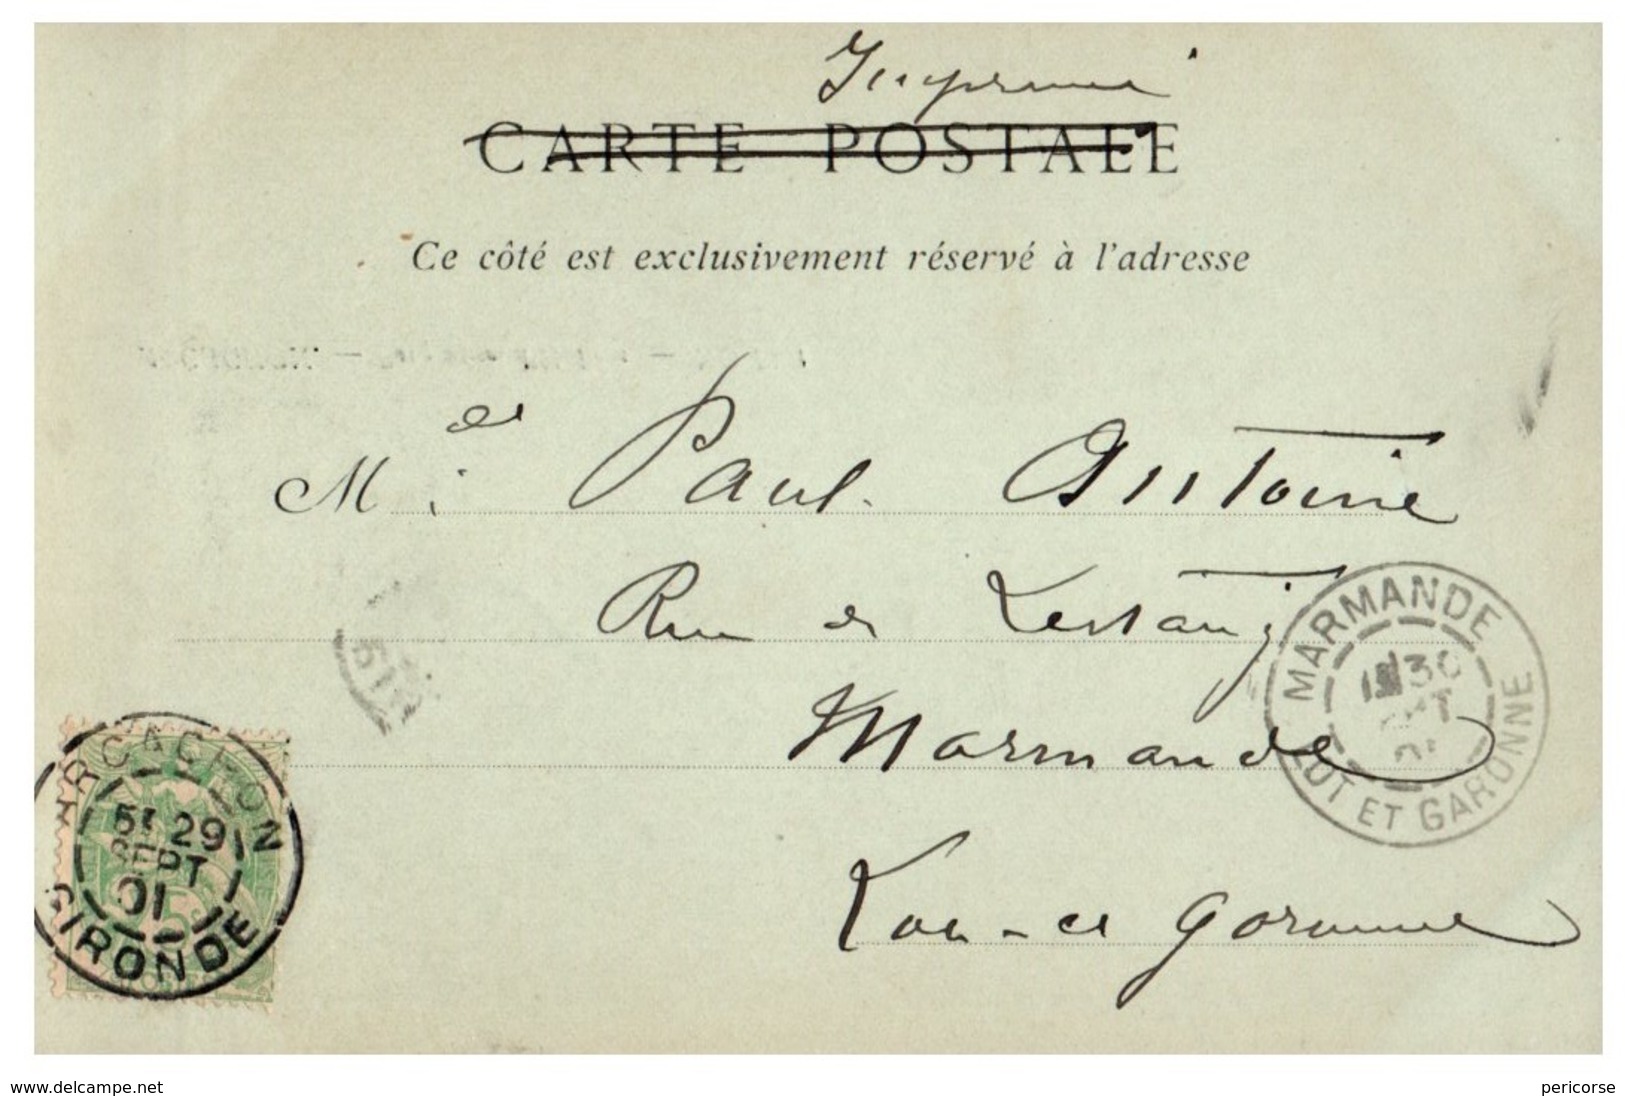 Imprimé
CARTE POSTALE
Ce côté est exclusivement réservé à l'adresse
M de Paul Antoine
Rue de Lestang
Marmande
Lot-et Garonne
MARMANDE
30
LOT ET GARONNE
ARCACHON
5E 29
SEPT
01
GIRONDE
www.delcampe.net
pericorse